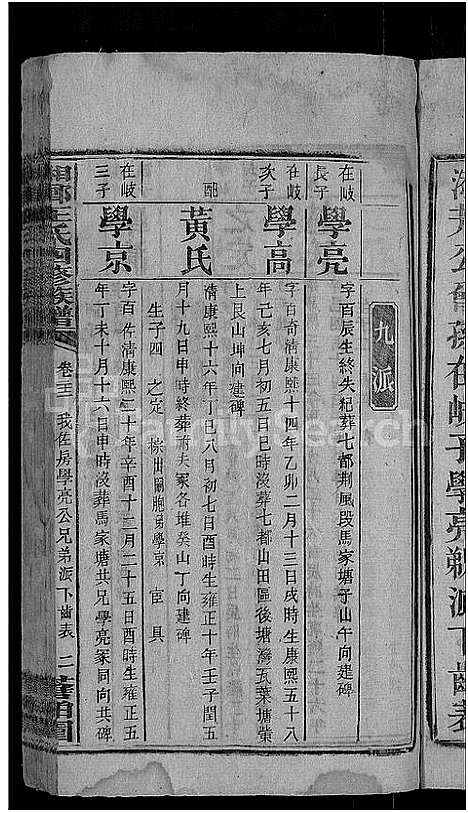 派下齒表
九派
在岐
長子
學亮
字百辰生終失紀葬七都荆風段馬家塘子山午向建碑
在岐
次子
學高
字百奇清康熙十四年乙卯二月十三日戌時生康熙五十八
年己亥七月初五日巳時沒葬七都山田區後塘灣瓦葉塘塋
上艮山坤向建碑
配
黃氏
清康熙十六年丁巳八月初七日酉時生雍正十年壬子閏五
月十九日申時終葬夫冢各堆癸山丁向建碑
生子四　之定　胞弟學京　宦　具
在岐
三子
學京
字百清康熙二十年辛酉十二月二十五日酉時生雍正五
年丁未十月十六日申時沒葬馬家塘共兄學亮冢同向共碑
湘鄉王氏四修族譜
卷三　我佐房學亮公兄弟派下齒表　二
FamilySearch